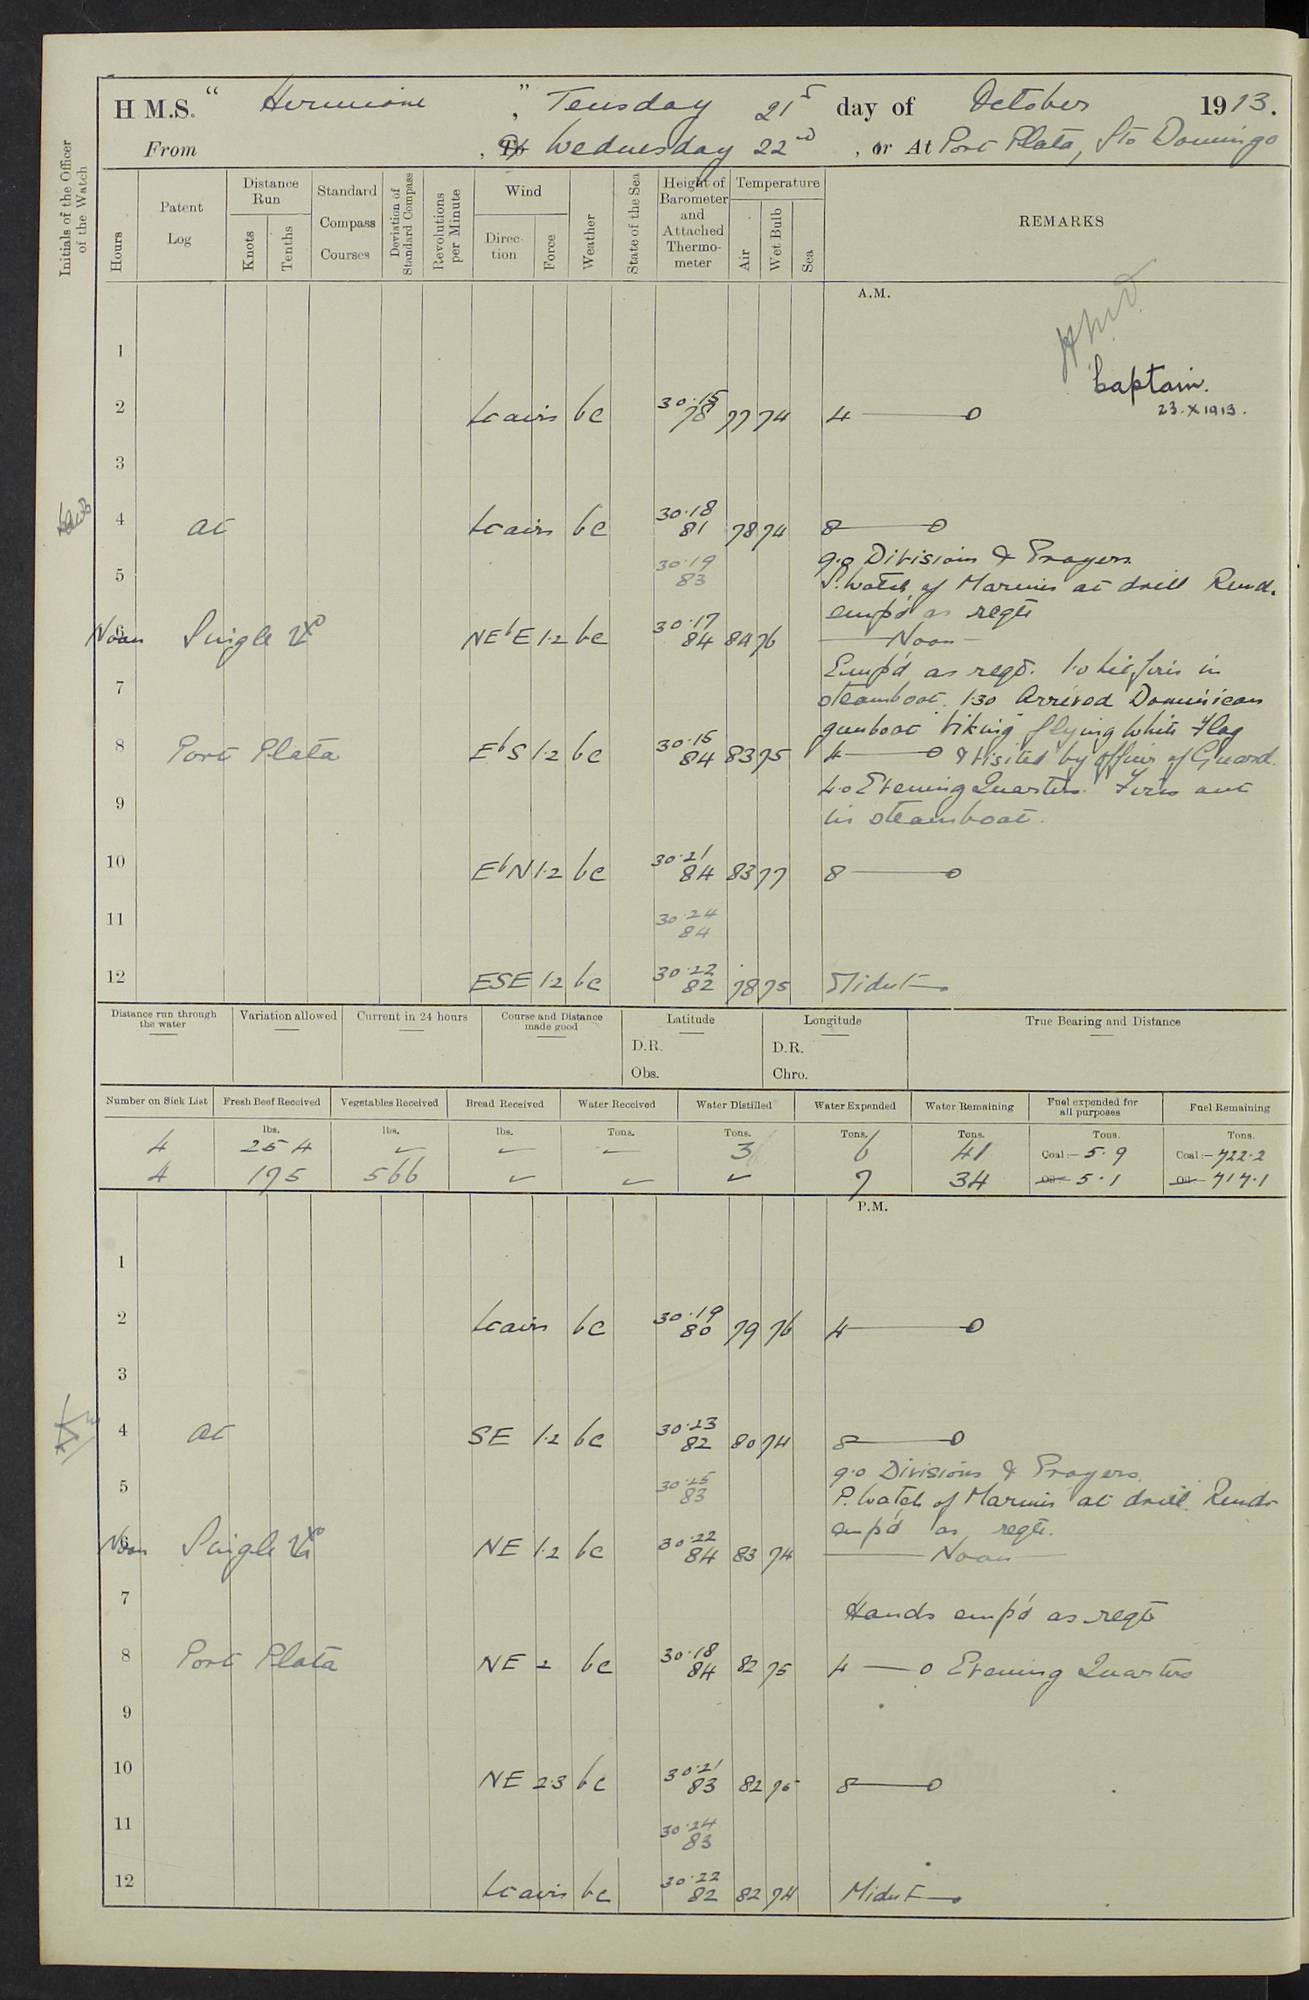 H M.S. " Hermione ", Teusday 21st day of October 1913.
From , & Wednesday 22nd , or At Port Plata, Sto Domingo
Initials of the Officer of the Watch
Hours Patent Log Distance Run Knots Tenths Standard Compass Courses Deviation of Standard Compass Revolutions per Minute Wind Direction Force Weather State of the Sea Height of Barometer and Attached Thermometer Temperature Air Wet Bulb Sea REMARKS
A.M.
1
Captain.
23.X.1913.
2 Lt airs bc 30.15 78 77 74 4 ——o
3
4 at Lt airs bc 30.18 81 78 74 8 ——o
9.0 Divisions & Prayers.
5 30.19 83 S. Watch of Marines at drill Remd.
emp'd as reqte
Noon 6 Single NEbE 1.2 bc 30.17 84 84 76 —Noon—
Emp'd as reqd. 1.0 Lit fires in
7 steamboat. 1.30 Arrived Dominican
gunboat Viking flying White Flag
8 Port Plata EbS 1.2 bc 30.15 84 83 75 4 ——o & visited by officer of Guard.
4.0 Evening Quarters. Fires out
9 in steamboat.
10 EbN 1.2 bc 30.21 84 83 77 8 ——o
11 30.24 84
12 ESE 1.2 bc 30.22 82 78 75 Midnt—
Distance run through the water Variation allowed Current in 24 hours Course and Distance made good Latitude Longitude True Bearing and Distance
D.R. D.R.
Obs. Chro.
Number on Sick List Fresh Beef Received Vegetables Received Bread Received Water Received Water Distilled Water Expended Water Remaining Fuel expended for all purposes Fuel Remaining
lbs. lbs. lbs. Tons. Tons. Tons. Tons. Tons. Tons.
4 254 3 6 41 Coal:— 5.9 Coal:— 722.2
4 175 566 7 34 Oil 5.1 Oil 717.1
P.M.
1
2 Lt airs bc 30.19 80 79 76 4 ——o
3
4 at SE 1.2 bc 30.23 82 80 74 8 ——o
9.0 Divisions & Prayers.
5 30.25 83 P. Watch of Marines at drill. Remdr
emp'd as reqte.
Noon 6 Single NE 1.2 bc 30.22 84 83 74 —Noon—
7 Hands emp'd as reqte
8 Port Plata NE 2 bc 30.18 84 82 75 4 —o Evening Quarters
9
10 NE 2.3 bc 30.21 83 82 75 8 ——o
11 30.24 83
12 Lt airs bc 30.22 82 82 74 Midnt—